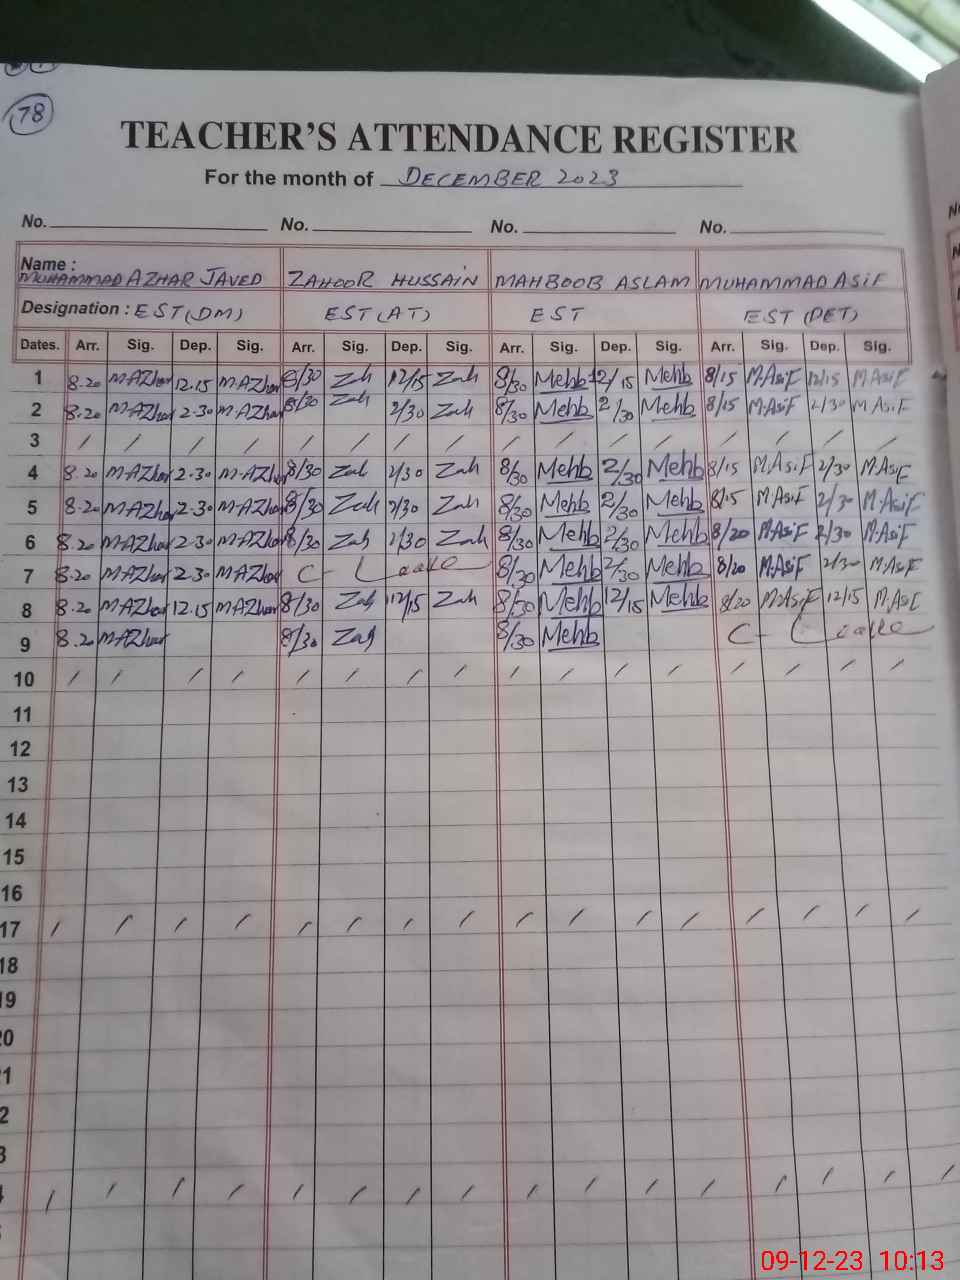 78
TEACHER'S ATTENDANCE REGISTER
For the month of DECEMBER 2023
No. No. No. No.
Name :
MUHAMMAD AZHAR JAVED ZAHOOR HUSSAIN MAHBOOB ASLAM MUHAMMAD ASiF
Designation : EST (DM) EST (AT) EST EST (PET)
Dates. Arr. Sig. Dep. Sig. Arr. Sig. Dep. Sig. Arr. Sig. Dep. Sig. Arr. Sig. Dep. Sig.
1 8.20 M.AZhar 12.15 M.AZhar 8/30 Zah 12/15 Zah 8/30 Mehb 12/15 Mehb 8/15 M.ASiF 12/15 M.ASiF
2 8.20 M.AZhar 2.30 M.AZhar 8/30 Zah 2/30 Zah 8/30 Mehb 2/30 Mehb 8/15 M.ASiF 2/30 M.ASiF
3 / / / / / / / / / / / / / / / /
4 8.20 M.AZhar 2.30 M.AZhar 8/30 Zah 2/30 Zah 8/30 Mehb 2/30 Mehb 8/15 M.ASiF 2/30 M.ASiF
5 8.20 M.AZhar 2.30 M.AZhar 8/30 Zah 2/30 Zah 8/30 Mehb 2/30 Mehb 8/15 M.ASiF 2/30 M.ASiF
6 8.20 M.AZhar 2.30 M.AZhar 8/30 Zah 2/30 Zah 8/30 Mehb 2/30 Mehb 8/20 M.ASiF 2/30 M.ASiF
7 8.20 M.AZhar 2.30 M.AZhar C- Leave 8/30 Mehb 2/30 Mehb 8/20 M.ASiF 2/30 M.ASiF
8 8.20 M.AZhar 12.15 M.AZhar 8/30 Zah 12/15 Zah 8/30 Mehb 12/15 Mehb 8/20 M.ASiF 12/15 M.ASiF
9 8.20 M.AZhar 8/30 Zah 8/30 Mehb C- Leave
10 / / / / / / / / / / / / / / / /
11
12
13
14
15
16
17 / / / / / / / / / / / / / / / /
18
19
20
21
2
3
4 / / / / / / / / / / / / / / / /
09-12-23 10:13